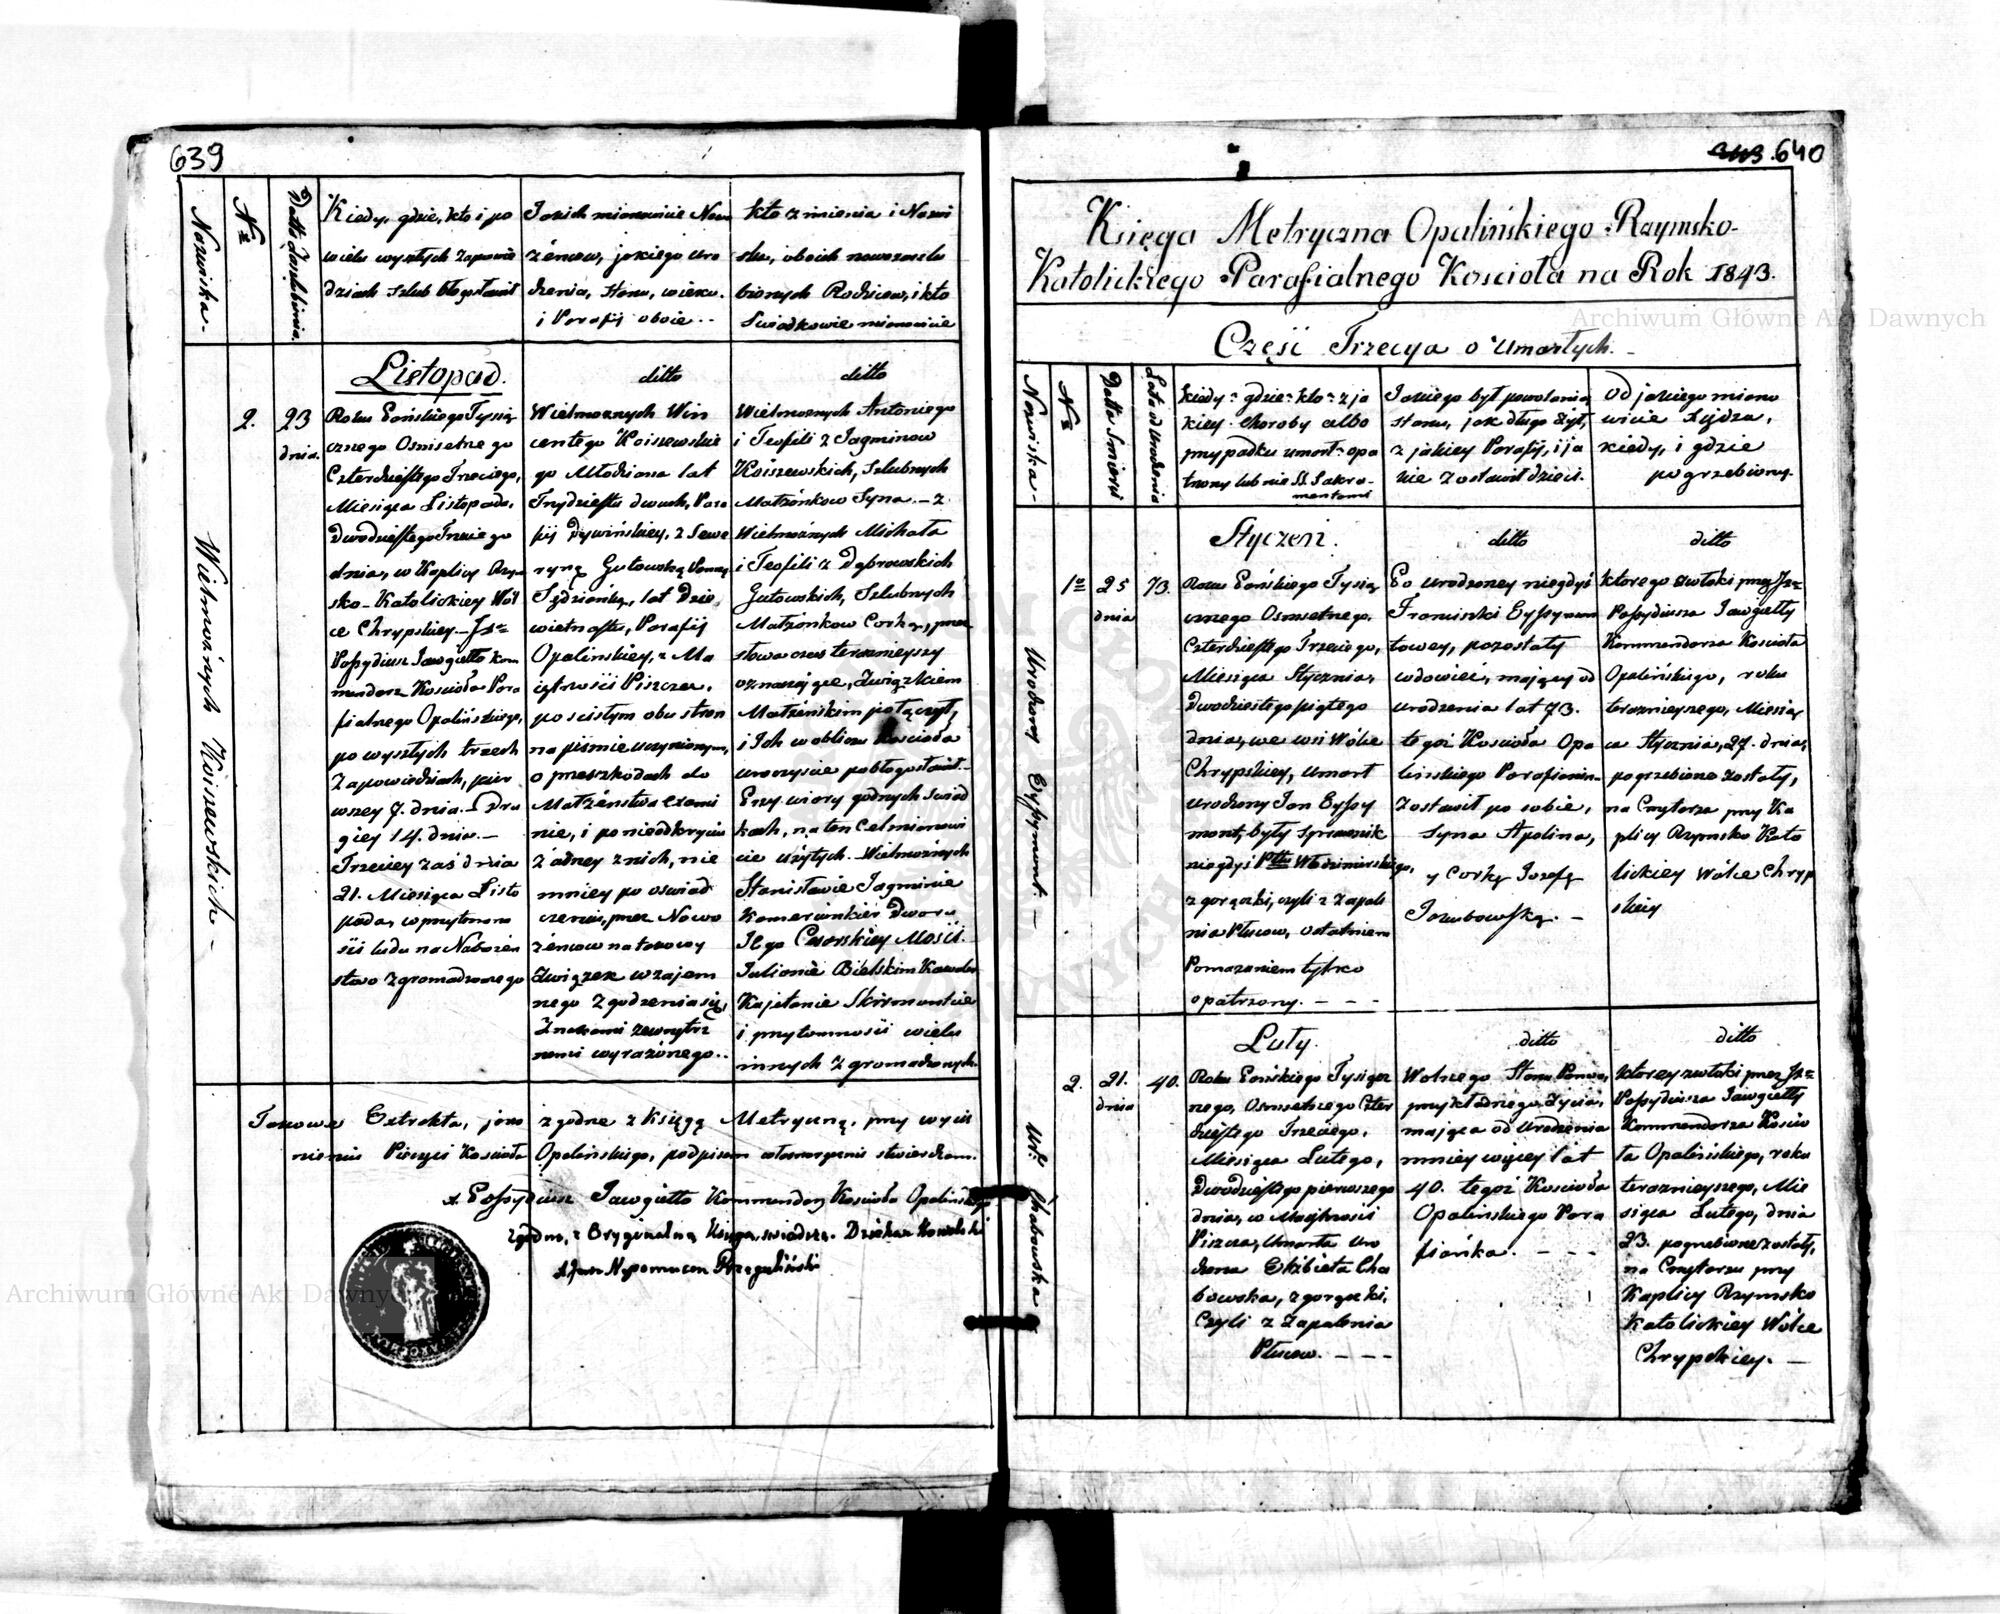 639
Nazwiska.
№
Datta Zaślubienia.
Kiedy, gdzie, kto i po
wielu wyszłych Zapowie
dziach szlub błogosławił
Jakich mianowicie Nowo
żeńcow, jakiego uro
dzenia, stanu, wieku.
i Parafij oboie. -
kto z imienia i Nazwi
ska, oboich nowozaslu
bionych Rodzicow, i kto
Swiadkowie mianowicie
Listopad.
ditto
ditto
Wielmożnych Koiszewskich -
2.
23
dnia.
Roku Pańskiego Tysią
cznego Osmsetne go
Czterdziestego Trzeciego,
Miesiąca Listopada,
Dwudziestego Trzeciego
dnia, w Kaplicy Rzym
sko-Katolickiey Wól
ce Chrypskiey - Jx
Possydiusz Jawgiełło kom
mendarz Kościoła Para
fialnego Opalińskiego,
po wyszłych trzech
Zapowiedziach, pier
wszey 7. dnia. - Dru
giey 14. dnia. -
Trzeciey zaś dnia
21. Miesiąca Listo
pada, w przytomno
ści ludu na Nabożeń
stwo zgromadzonego
Wielmożnych Win
centego Koiszewskie
go Młodziana lat
Trzydziestu dwuch, Para
fij Dywińskiey, z Sewe
ryną Gutowską Panną
Sędzianką, lat Dzie
więtnastu, Parafij
Opalińskiey, z Ma
iętności Piszcza,
po scisłym obu stron
na piśmie uczynionym,
o przeszkodach do
Małżeństwa exami
nie, i po nieodkryciu
żadney z nich, nie
mniey po oswiad
czeniu, przez Nowo
żeńcow na takowy
Związek wzajem
nego zgodzenia się,
Znakami zewnętrz
nemi wyrażonego..
Wielmożnych Antoniego
i Teofili z Jagminow
Koiszewskich, Szlubnych
Małżonkow Syna. - z
Wielmożnych Michała
i Teofili z Dąbrowskich
Gutowskich, Szlubnych
Małżonkow Corką, przez
słowa czas teraznieyszy
oznaczające, Związkiem
Małżeńskim połączył,
i Ich w obliczu Kościoła
uroczyscie pobłogosławił. -
Przy wiary godnych Swiad
kach, na ten cel mianowi
cie użytych. Wielmożnych
Stanisławie Jagminie
Kamerjunkier Dworu
JEgo Cesarskiey Mości.
Julianie Bielskim Kawaler
Kajetanie Skirmuntcie
i przytomności wielu
innych zgromadzonych.
Takowe Extrakta, jako zgodne z Księgą Metryczną, przy wycis
nieniu Pieczęci Kościoła Opalińskiego, podpisem własnoręcznie stwierdzam.
X. Possydiusz Jawgiełło Kommendarz Kościoła Opalińskiego
Zgodno, z Oryginalną Księgą, swiadczę. Dziekan Kowelski
X Jan Nepomucen Przegaliński
640
Księga Metryczna Opalińskiego Rzymsko-
Katolickiego Parafialnego Kościoła na Rok 1843.
Część Trzecya o Umarłych. -
Nazwiska -
№
Datta Smierci
Lata od Urodzenia
kiedy? gdzie? kto? z ja
kiey choroby albo
przypadku umarł? opa
trzony lub nie SS. Sakra-
mentami
Jakiego był powołania
stanu, jak długo żył,
z jakiey Parafij, i ja
kie zostawił dzieci.
Od jakiego miano
wicie Xiędza,
kiedy, i gdzie
pogrzebiony.
Styczeń.
ditto
ditto
Urodzony Eyssymont. -
1
25
dnia
73.
Roku Pańskiego Tysią
cznego Osmsetnego,
Czterdziestego Trzeciego,
Miesiąca Stycznia,
Dwudziestego piątego
dnia, we wsi Wólce
Chrypskiey, umarł
urodzony Jan Eyssy
mont, były Sprawnik
niegdyś Pttu Włodzimirskiego,
z gorączki, czyli z Zapale
nia Płucow, ostatniem
Pomazaniem tylko
opatrzony. - - -
Po urodzoney niegdyś
Franciszki Eyssymon
towey, pozostały
wdowiec, maiący od
urodzenia lat 73.
tegoż Kościoła Opa
lińskiego Parafianin
Zostawił po sobie,
Syna Apolina,
y Corkę Jozefę
Jakubowską. -
ktorego zwłoki przez Jx
Possydiusza Jawgiełły
Kommendarza Kościoła
Opalińskiego, roku
teraznieyszego, Miesią
ca Stycznia, 27. dnia,
pogrzebione zostały,
na Cmętarzu przy Ka
plicy Rzymsko Kato
lickiey Wólce Chryp
skiey
Luty.
ditto
ditto
Ur: Chabowska
2.
21.
dnia
40.
Roku Pańskiego Tysiącz
nego, Osmsetnego Czter
dziestego Trzeciego,
Miesiąca Lutego,
Dwudziestego pierwszego
dnia, w Maiętności
Piszcza, Umarła Uro
dzona Elżbieta Cha
bowska, z gorączki,
Czyli z Zapalenia
Płucow. - - -
Wolnego Stanu Panna,
przykładnego Życia,
maiąca od Urodzenia
mniey więcey lat
40. tegoż Kościoła
Opalińskiego Para
fianka. - - -
ktorey zwłoki przez Jx
Possydiusza Jawgiełły
Kommendarza Kościo
ła Opalińskiego, roku
teraznieyszego, Mie
siąca Lutego, dnia
23. pogrzebione zostały,
na Cmętarzu przy
Kaplicy Rzymsko
Katolickiey Wólce
Chrypskiey. -
Archiwum Główne Akt Dawnych
Archiwum Główne Akt Dawnych